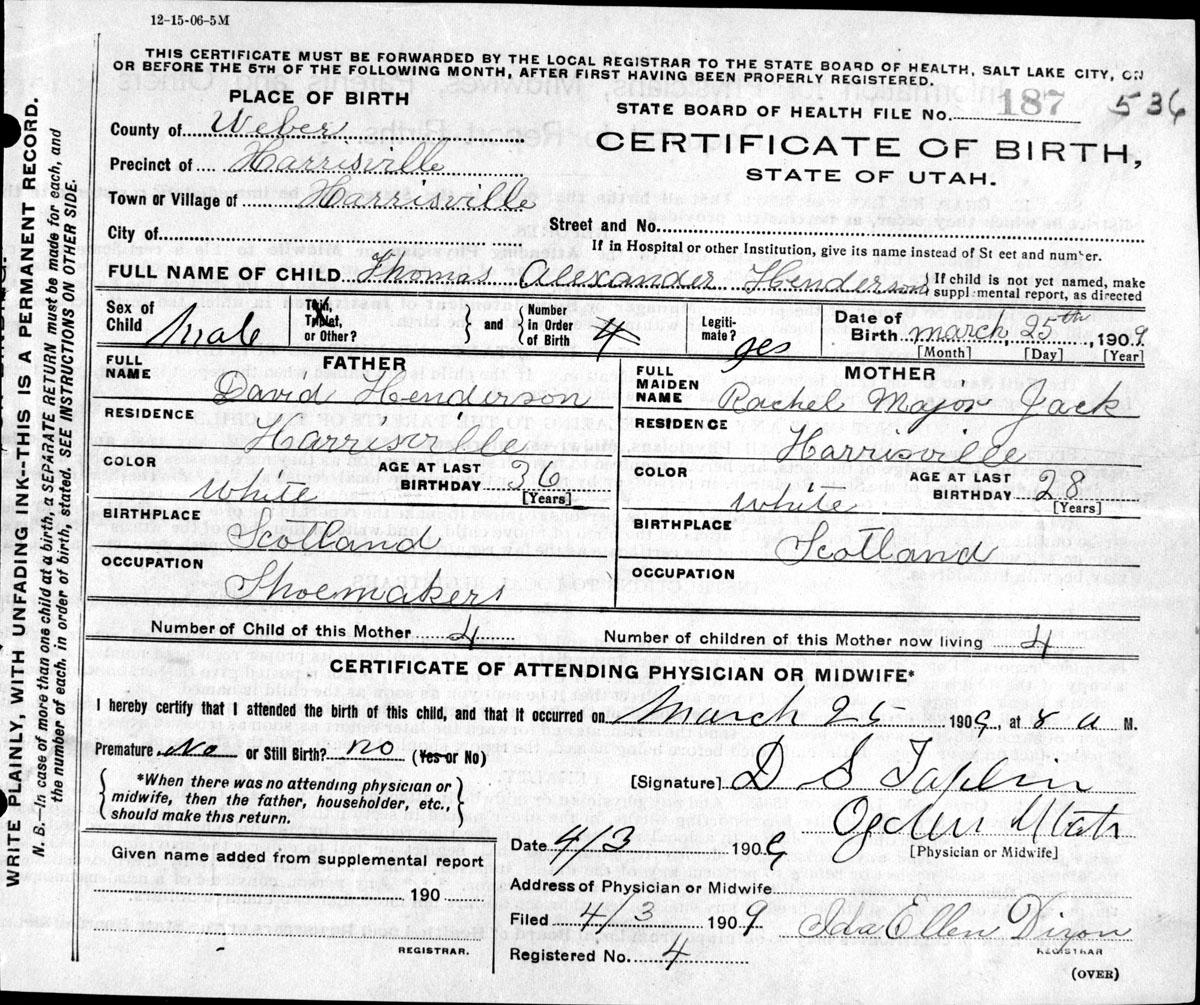 12-15-06-5M
THIS CERTIFICATE MUST BE FORWARDED BY THE LOCAL REGISTRAR TO THE STATE BOARD OF HEALTH, SALT LAKE CITY, ON
OR BEFORE THE 5TH OF THE FOLLOWING MONTH, AFTER FIRST HAVING BEEN PROPERLY REGISTERED.
WRITE PLAINLY, WITH UNFADING INK--THIS IS A PERMANENT RECORD.
N. B.—In case of more than one child at a birth, a SEPARATE RETURN must be made for each, and
the number of each, in order of birth, stated. SEE INSTRUCTIONS ON OTHER SIDE.
PLACE OF BIRTH
STATE BOARD OF HEALTH FILE No. 187 536
County of Weber
CERTIFICATE OF BIRTH,
Precinct of Harrisville
STATE OF UTAH.
Town or Village of Harrisville
City of
Street and No.
If in Hospital or other Institution, give its name instead of St eet and number.
FULL NAME OF CHILD Thomas Alexander Henderson
If child is not yet named, make
suppl mental report, as directed
Sex of Child Male
Twin, Triplet, or Other?
and
Number in Order of Birth 4
Legiti-mate? yes
Date of Birth March, 25th, 1909
[Month] [Day] [Year]
FATHER
FULL NAME David Henderson
RESIDENCE Harrisville
COLOR White
AGE AT LAST BIRTHDAY 36 [Years]
BIRTHPLACE Scotland
OCCUPATION Shoemakers
MOTHER
FULL MAIDEN NAME Rachel Major Jack
RESIDENCE Harrisville
COLOR White
AGE AT LAST BIRTHDAY 28 [Years]
BIRTHPLACE Scotland
OCCUPATION
Number of Child of this Mother 4
Number of children of this Mother now living 4
CERTIFICATE OF ATTENDING PHYSICIAN OR MIDWIFE*
I hereby certify that I attended the birth of this child, and that it occurred on March 25 1909, at 8 a M.
Premature No or Still Birth? no (Yes or No)
*When there was no attending physician or
midwife, then the father, householder, etc.,
should make this return.
[Signature] D S
Ogden Utah
[Physician or Midwife]
Date 4/3 1909
Given name added from supplemental report
190
REGISTRAR.
Address of Physician or Midwife
Filed 4/3 1909
Ida Ellen Dixon
REGISTRAR
Registered No. 4
(OVER)